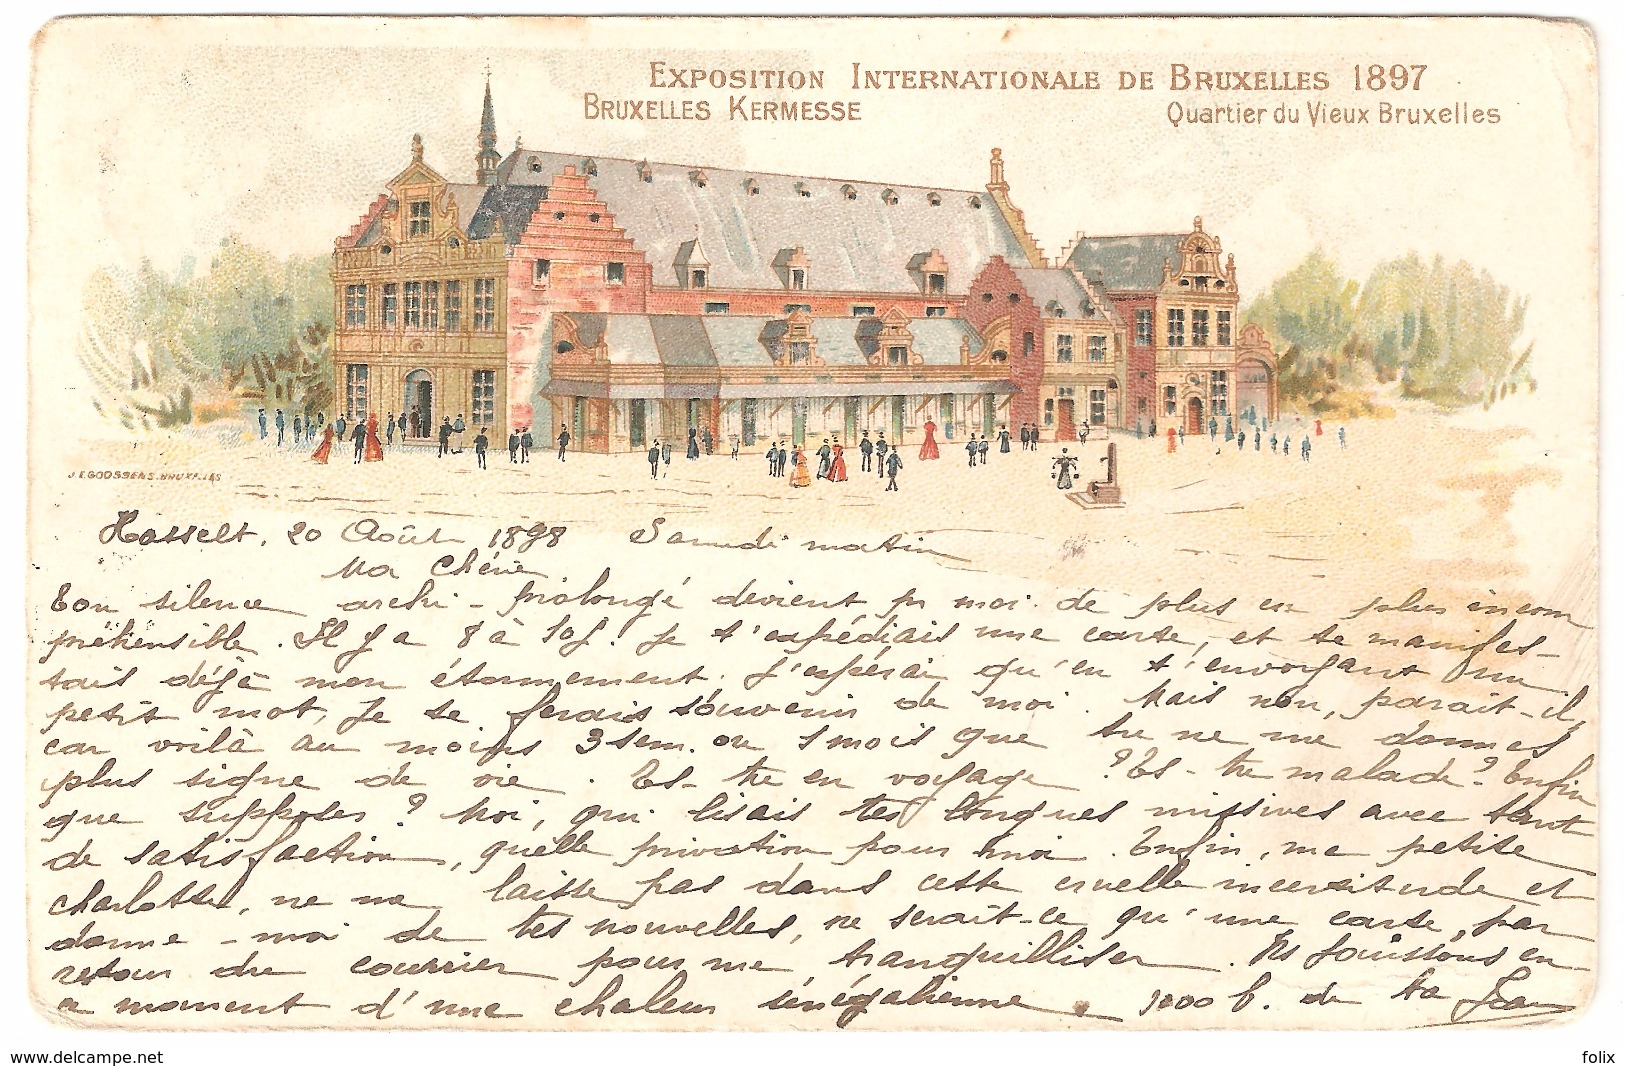 EXPOSITION INTERNATIONALE DE BRUXELLES 1897
BRUXELLES KERMESSE
Quartier du Vieux Bruxelles
J.E.GOOSSENS.BRUXELLES
Hasselt, 20 Août 1898 Samedi matin
Ma Chérie
Ton silence archi-prolongé devient pr moi de plus en plus incom
préhensible. Il y a 8 à 10 j. je t'expédiais une carte, et te manifes-
tais déjà mon étonnement. J'espérai qu'en t'envoyant un
petit mot, je te ferais souvenir de moi. Mais non, parait-il,
car voilà au moins 3 sem. ou 1 mois que tu ne me donnes
plus signe de vie. Es-tu en voyage? Es-tu malade? Enfin
que supposer? Moi, qui lisais tes longues missives avec tant
de satisfaction, quelle privation pour moi. Enfin, ma petite
charlotte, ne me laisse pas dans cette cruelle incertitude et
donne-moi de tes nouvelles, ne serait-ce qu'une carte, par
retour du courrier pour me tranquilliser. Ns jouissons en
ce moment d'une chaleur sénégalienne. 1000 b. de ta
delcampe.net
folix